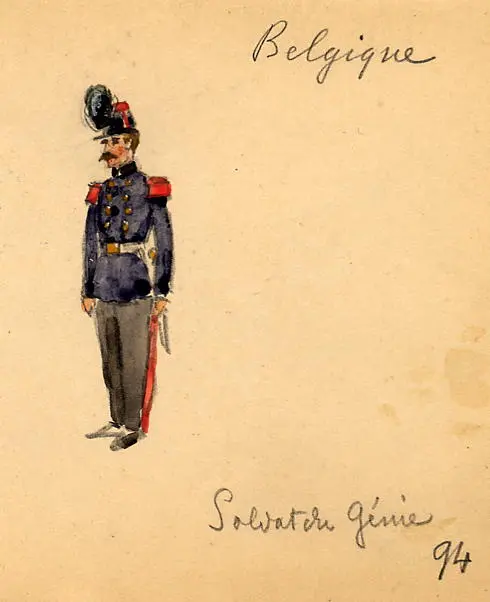 Belgique
Soldat du Génie
94